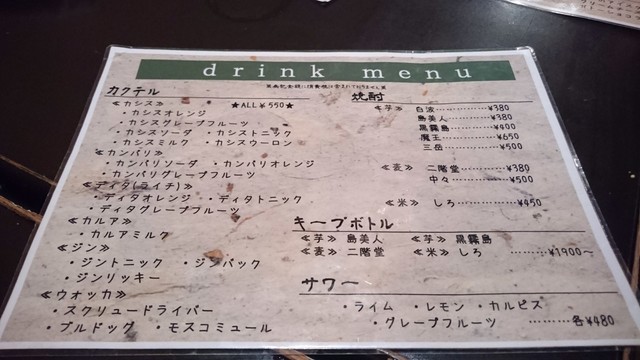 drink menu
カクテル
≪カシス≫ ★ALL¥550★
・カシスオレンジ
・カシスグレープフルーツ
・カシスソーダ ・カシストニック
・カシスミルク ・カシスウーロン
≪カンパリ≫
・カンパリソーダ ・カンパリオレンジ
・カンパリグレープフルーツ
≪ディタ(ライチ)≫
・ディタオレンジ ・ディタトニック
・ディタグレープフルーツ
≪カルア≫
・カルアミルク
≪ジン≫
・ジントニック ・ジンバック
・ジンリッキー
≪ウオッカ≫
・スクリュードライバー
・ブルドッグ ・モスコミュール
焼酎
≪芋≫ 白波…………¥380
島美人…………¥380
黒霧島…………¥400
魔王…………¥650
三岳…………¥500
≪麦≫ 二階堂…………¥380
中々…………¥500
≪米≫ しろ…………¥450
キープボトル
≪芋≫ 島美人 ≪芋≫ 黒霧島
≪麦≫ 二階堂 ≪米≫ しろ ………¥1900～
サワー
・ライム ・レモン ・カルピス
・グレープフルーツ ………各¥480